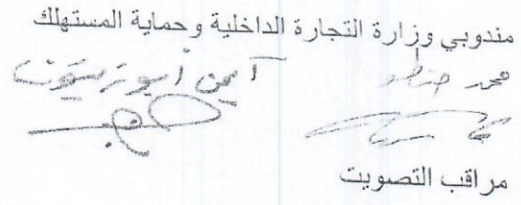 مندوبي وزارة التجارة الداخلية وحماية المستهلك
محمد أيمن أبو زيتون
مراقب التصويت